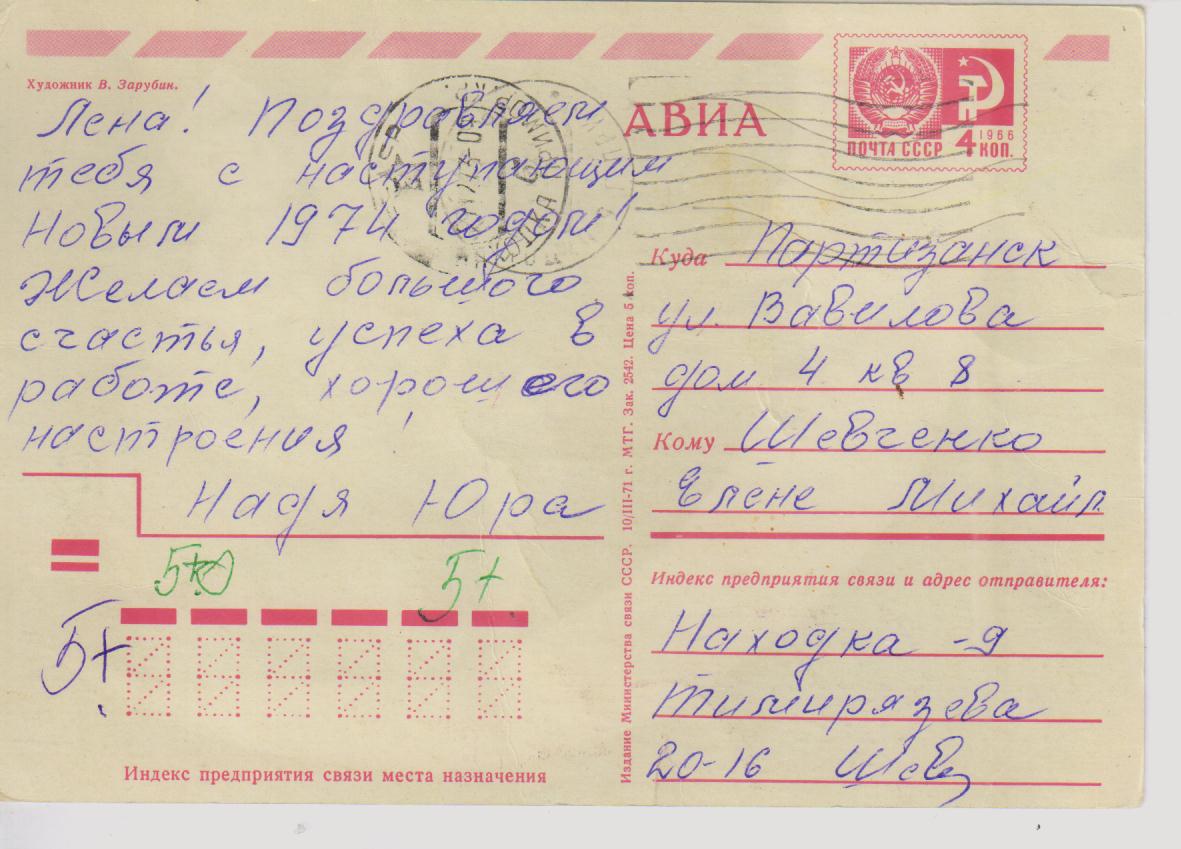 Художник В. Зарубин.
Лена! Поздравляем
тебя с наступающим
Новым 1974 годом!
Желаем большого
счастья, успеха в
работе, хорошего
настроения!
Надя Юра
5+
5+
5+
Индекс предприятия связи места назначения
Издание Министерства связи СССР. 10/III-71 г. МТГ. Зак. 2542. Цена 5 коп.
АВИА
ПОЧТА СССР
1966
4 КОП.
Куда Партизанск
ул. Вавилова
дом 4 кв 8
Кому Шевченко
Елене Михайл.
Индекс предприятия связи и адрес отправителя:
Находка -9
Тимирязева
20-16 Шевч